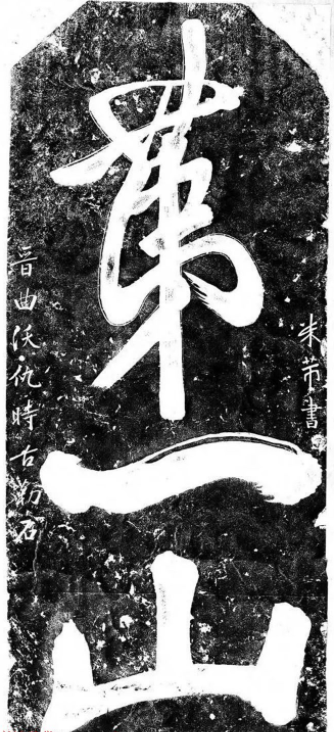 米芾書
第一山
晉曲沃仇時古勒石